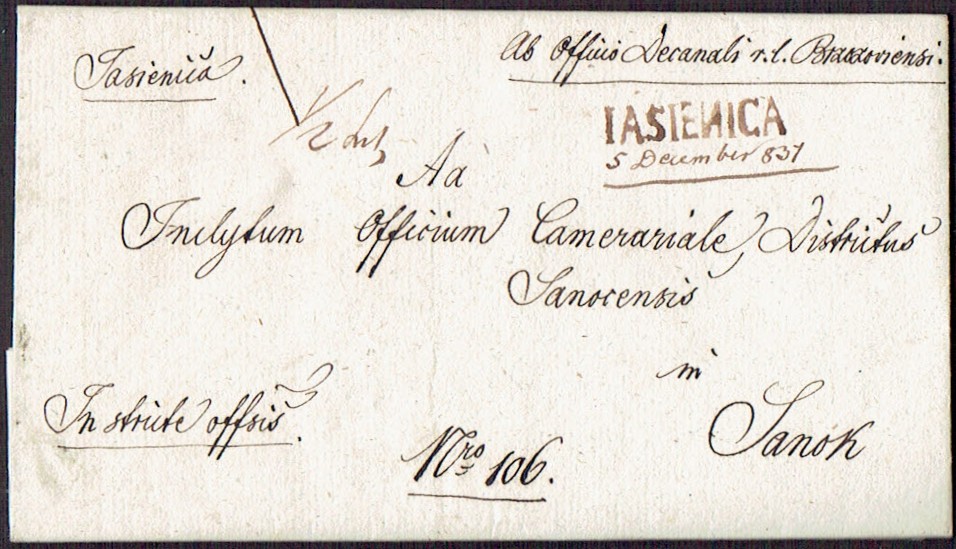 Jasienica.
Ab Officio Decanali r. l. Brzozoviensi.
1/2 Lot
IASIENICA
5 December 831
Ad
Inclytum Officium Camerariale, Districtus
Sanocensis
in
Sanok
In stricte offsis.
Nro 106.